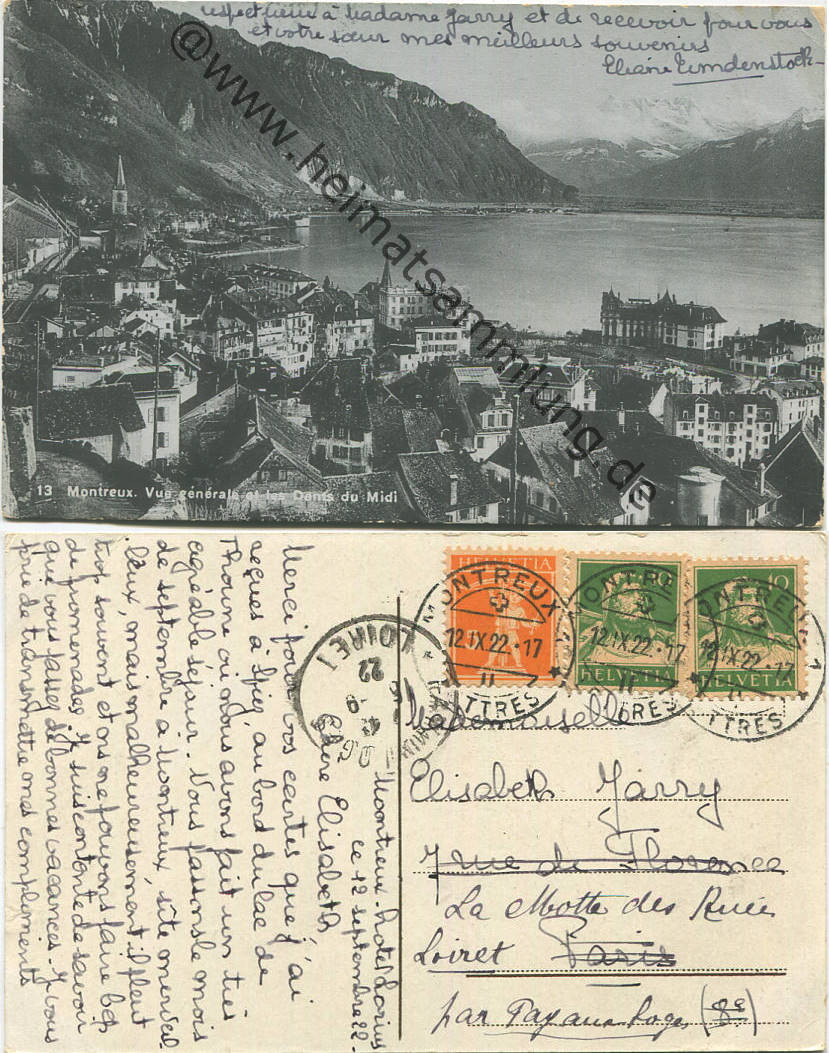 respectueux à Madame Jarry et de recevoir pour vous
et votre sœur mes meilleurs souvenirs
Eliane
@www.heimatsammlung.de
13 Montreux. Vue générale et les Dents du Midi
Montreux - hotel Lorius
ce 12 septembre 22 -
Chère Elisabeth
Merci pour vos cartes que j'ai
reçues à Spiez, au bord du lac de
Thoune où nous avons fait un très
agréable séjour. Nous passons le mois
de septembre à Montreux, site merveil
leux, mais malheureusement il pleut
trop souvent et on ne pouvons faire bep
de promenades. Je suis contente de savoir
que vous passez de bonnes vacances - Je vous
prie de transmettre mes compliments
HELVETIA
10
HELVETIA
10
HELVETIA
MONTREUX 1
12.IX.22.-17
LETTRES
MONTREUX 1
12.IX.22.-17
LETTRES
MONTREUX 1
12.IX.22.-17
LETTRES
LOIRET
22
Mademoiselle
Elisabeth Jarry
7 rue de Florence
La Motte des
Loiret Paris
par Fay aux Loges (8e)